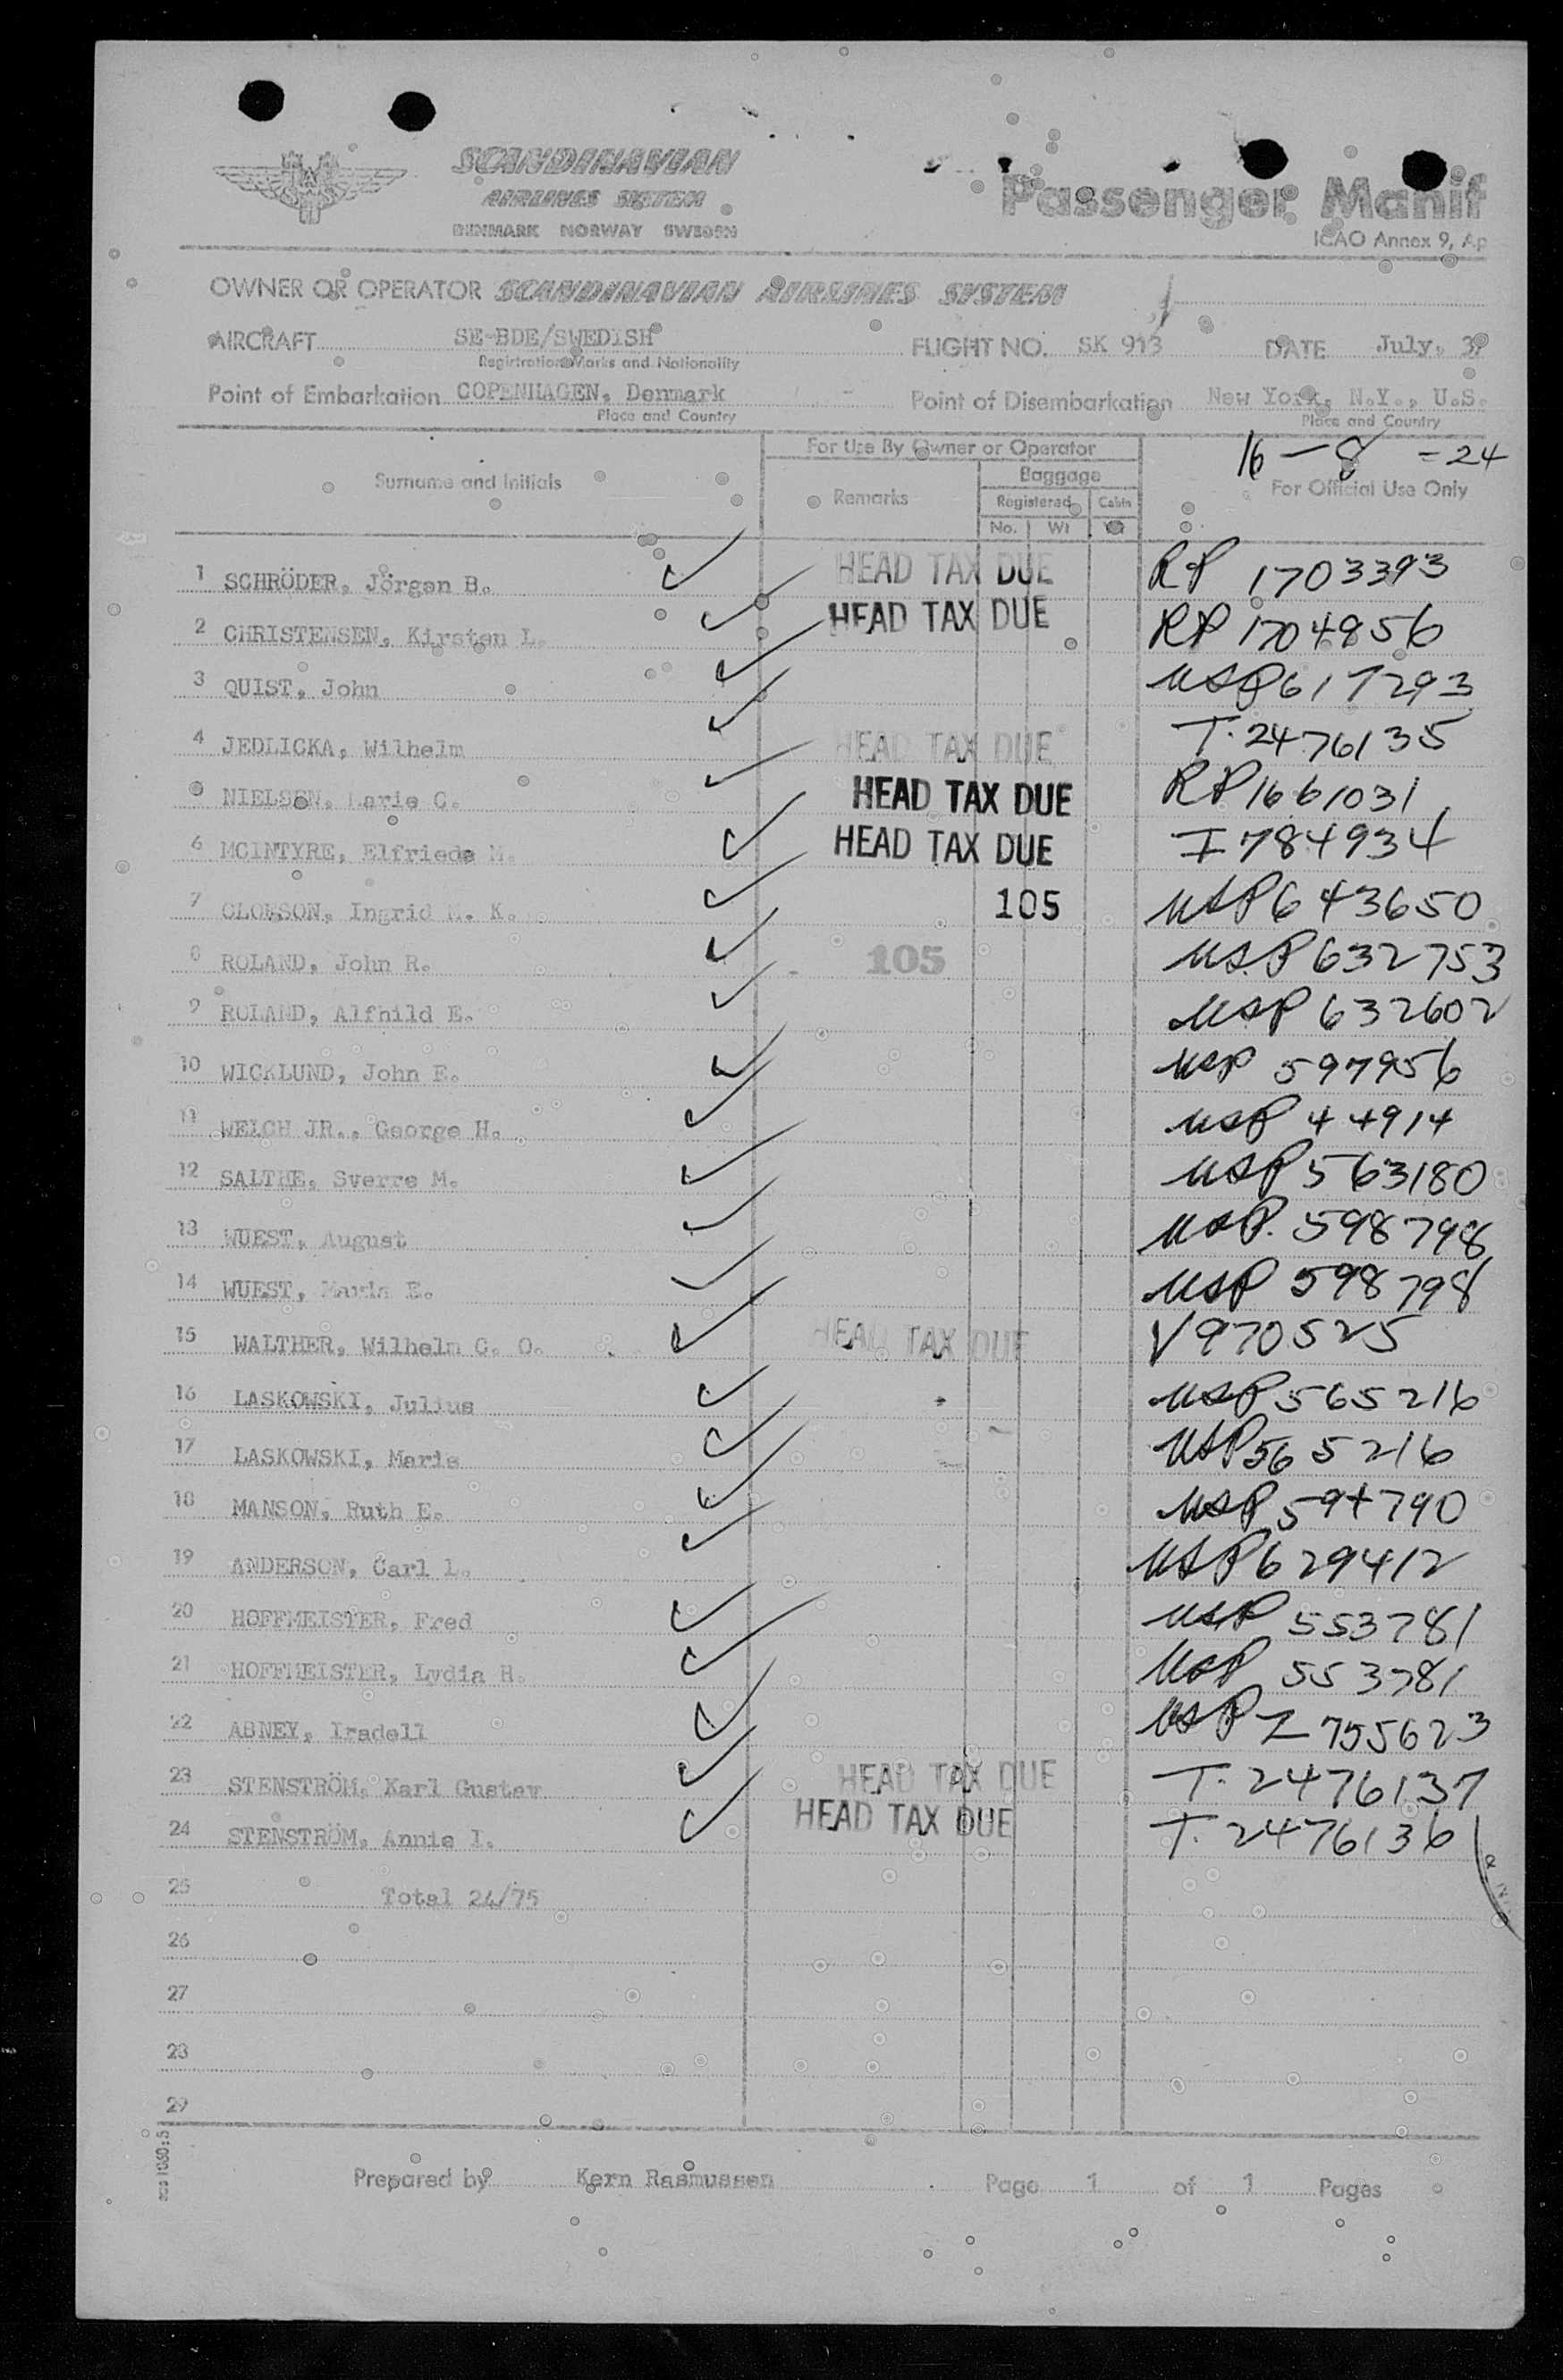 SCANDINAVIAN
AIRLINES SYSTEM
DENMARK NORWAY SWEDEN
Passenger Manif
ICAO Annex 9, Ap
OWNER OR OPERATOR SCANDINAVIAN AIRLINES SYSTEM
AIRCRAFT SE-BDE/SWEDISH FLIGHT NO. SK 913 DATE July, 3
Registration Marks and Nationality
Point of Embarkation COPENHAGEN, Denmark Point of Disembarkation New York, N.Y., U.S.
Place and Country Place and Country
16 - 8 = 24
For Use By Owner or Operator
Surname and Initials Remarks Baggage For Official Use Only
Registered Cabin
No. Wt Wt
1 SCHRÖDER, Jörgen B. HEAD TAX DUE RP 1703393
2 CHRISTENSEN, Kirsten L. HEAD TAX DUE RP 1704856
3 QUIST, John USP 617293
4 JEDLICKA, Wilhelm HEAD TAX DUE T. 2476135
NIELSEN, Marie C. HEAD TAX DUE RP 1661031
6 MCINTYRE, Elfriede M. HEAD TAX DUE I 784934
7 OLOFSON, Ingrid M. K. 105 USP 643650
8 ROLAND, John R. 105 USP 632753
9 ROLAND, Alfhild E. USP 632602
10 WICKLUND, John E. USP 597956
11 WELCH JR., George H. USP 44914
12 SALTHE, Sverre M. USP 563180
13 WUEST, August USP. 598798
14 WUEST, Maria E. USP 598798
15 WALTHER, Wilhelm G. O. HEAD TAX DUE V 970525
16 LASKOWSKI, Julius USP 565216
17 LASKOWSKI, Marie USP 565216
18 MANSON, Ruth E. USP 594790
19 ANDERSON, Carl L. USP 629412
20 HOFFMEISTER, Fred USP 553781
21 HOFFMEISTER, Lydia H. USP 553781
22 ABNEY, Iradell USP Z 755623
23 STENSTRÖM, Karl Gustav HEAD TAX DUE T. 2476137
24 STENSTRÖM, Annie I. HEAD TAX DUE T. 2476136
25 Total 24/75
26
27
28
29
Prepared by Kern Rasmussen Page 1 of 1 Pages